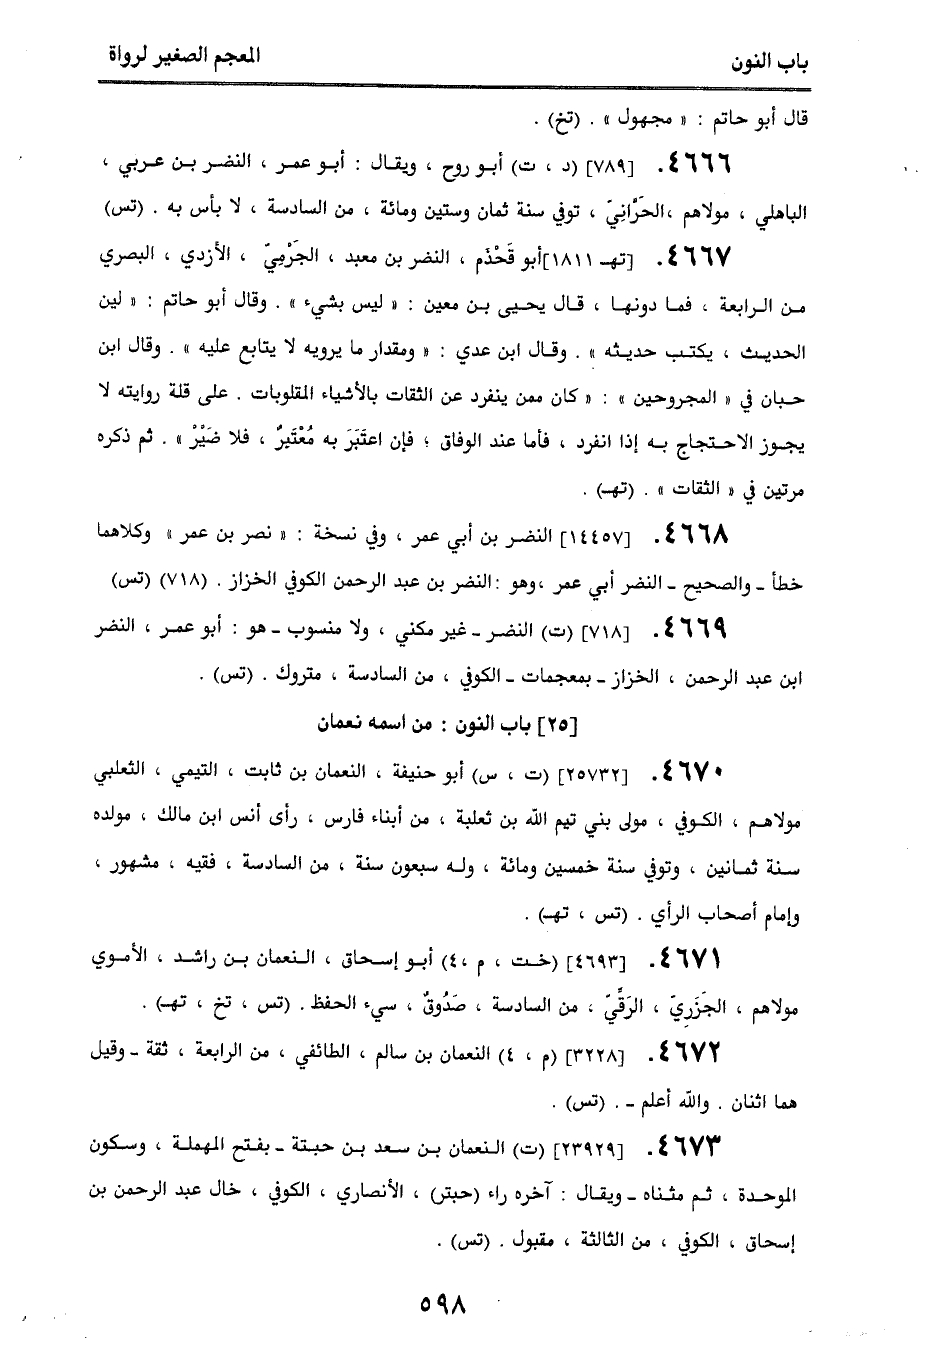 باب النون
المعجم الصغير لرواة
قال أبو حاتم : « مجهول » . (تخ) .
٤٦٦٦. [٧٨٩] (د ، ت) أبو روح ، ويقال : أبو عمر ، النضر بن عربي ،
الباهلي ، مولاهم ،الحَرَّانِيّ ، توفي سنة ثمان وستين ومائة ، من السادسة ، لا بأس به . (تس)
٤٦٦٧. [تهـ ١٨١١]أبو قَحْذَم ، النضر بن معبد ، الجَرْمِيّ ، الأزدي ، البصري
من الرابعة ، فما دونها ، قال يحيى بن معين : « ليس بشيء » . وقال أبو حاتم : « لين
الحديث ، يكتب حديثه » . وقال ابن عدي : « ومقدار ما يرويه لا يتابع عليه » . وقال ابن
حبان في « المجروحين » : « كان ممن ينفرد عن الثقات بالأشياء المقلوبات . على قلة روايته لا
يجوز الاحتجاج به إذا انفرد ، فأما عند الوفاق ؛ فإن اعتَبَرَ به مُعْتَبِرٌ ، فلا ضَيْرْ » . ثم ذكره
مرتين في « الثقات » . (تهـ) .
٤٦٦٨. [١٤٤٥٧] النضر بن أبي عمر ، وفي نسخة : « نصر بن عمر » وكلاهما
خطأ ـ والصحيح ـ النضر أبي عمر ،وهو :النضر بن عبد الرحمن الكوفي الخزاز . (٧١٨) (تس)
٤٦٦٩. [٧١٨] (ت) النضر ـ غير مكني ، ولا منسوب ـ هو : أبو عمر ، النضر
ابن عبد الرحمن ، الخزاز ـ بمعجمات ـ الكوفي ، من السادسة ، متروك . (تس) .
[٢٥] باب النون : من اسمه نعمان
٤٦٧٠. [٢٥٧٣٢] (ت ، س) أبو حنيفة ، النعمان بن ثابت ، التيمي ، الثعلبي
مولاهم ، الكوفي ، مولى بني تيم الله بن ثعلبة ، من أبناء فارس ، رأى أنس ابن مالك ، مولده
سنة ثمانين ، وتوفي سنة خمسين ومائة ، وله سبعون سنة ، من السادسة ، فقيه ، مشهور ،
وإمام أصحاب الرأي . (تس ، تهـ) .
٤٦٧١. [٤٦٩٣] (خت ، م ،٤) أبو إسحاق ، النعمان بن راشد ، الأموي
مولاهم ، الجَزَريّ ، الرَقِّيّ ، من السادسة ، صَدُوقٌ ، سيء الحفظ . (تس ، تخ ، تهـ) .
٤٦٧٢. [٣٢٢٨] (م ، ٤) النعمان بن سالم ، الطائفي ، من الرابعة ، ثقة ـ وقيل
هما اثنان . والله أعلم ـ . (تس) .
٤٦٧٣. [٢٣٩٢٩] (ت) النعمان بن سعد بن حبتة ـ بفتح المهملة ، وسكون
الموحدة ، ثم مثناه ـ ويقال : آخره راء (حبتر) ، الأنصاري ، الكوفي ، خال عبد الرحمن بن
إسحاق ، الكوفي ، من الثالثة ، مقبول . (تس) .
٥٩٨